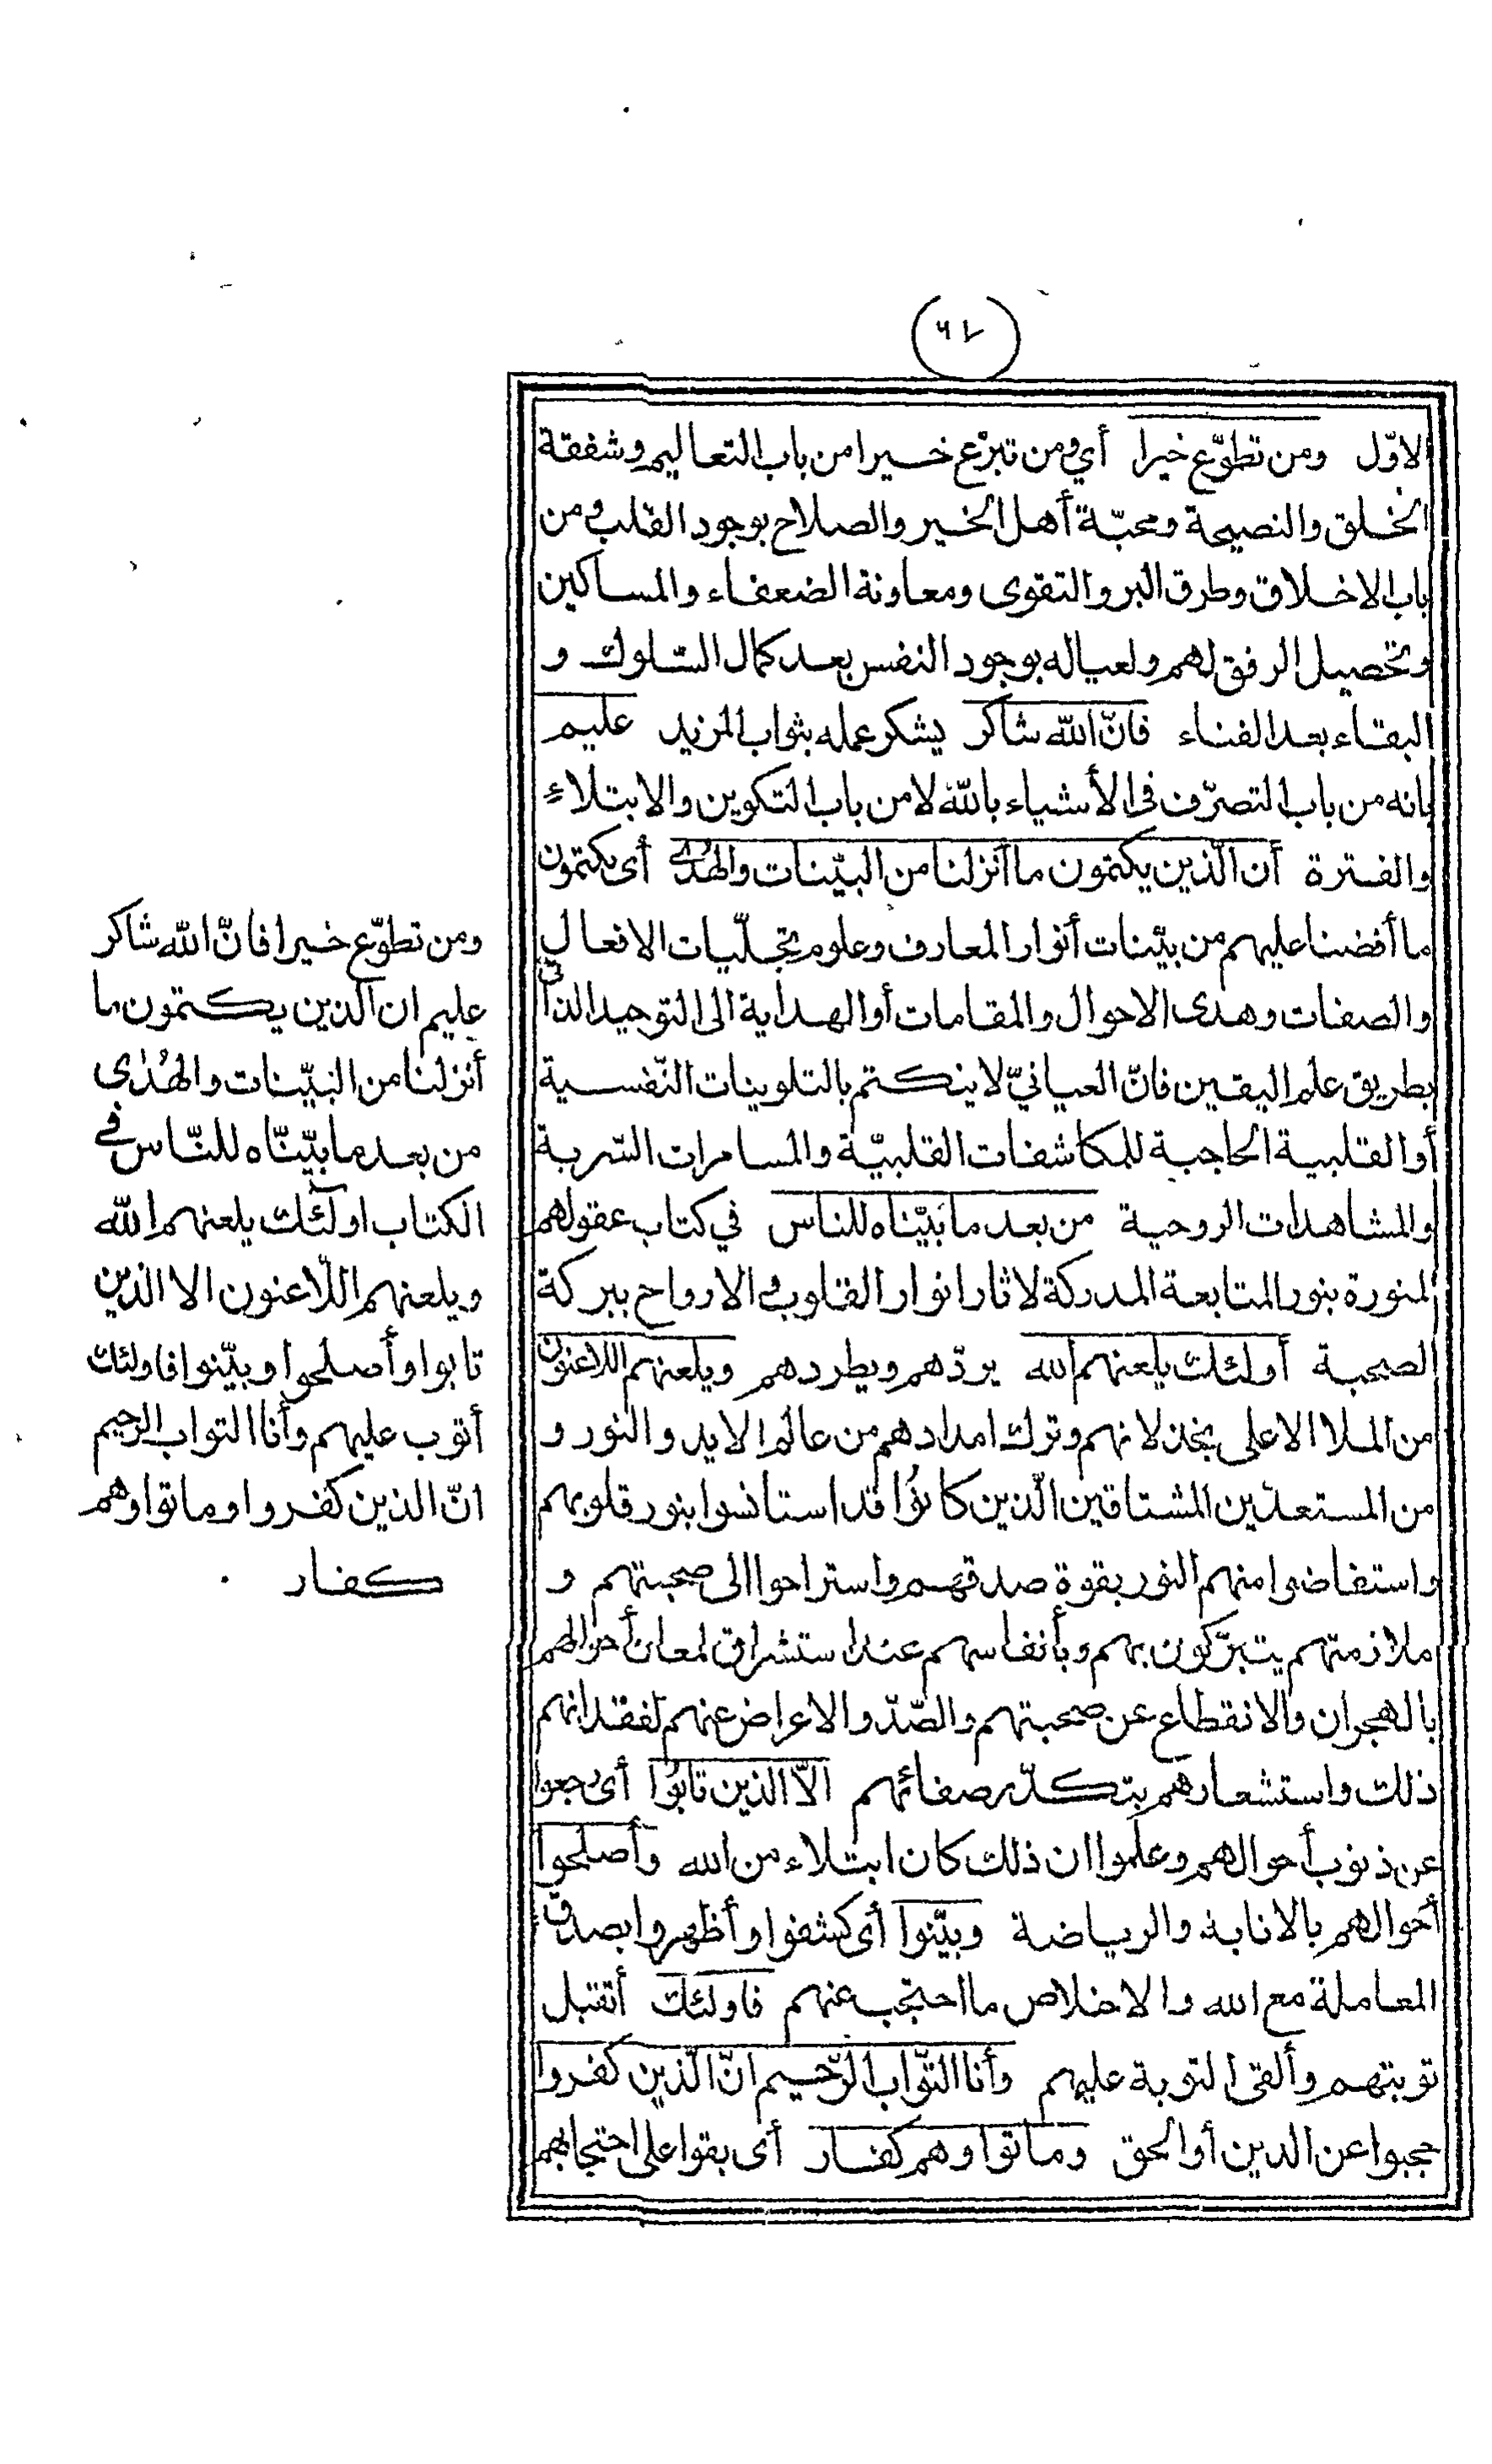 (٦٢)
الاوّل ومن تطوّع خيرا أي ومن تبرّع خسيرا من باب التعاليم وشفقة
الخلق والنصيحة ومحبّة أهل الخير والصلاح بوجود القلب ومن
باب الاخلاق وطرق البر والتقوى ومعاونة الضعفاء والمساكين
وتحصيل الرفق لهم ولعياله بوجود النفس بعد كمال السّلوك و
البقاء بعد الفناء فانّ الله شاكر يشكر عمله بثواب المزيد عليم
بانه من باب التصرّف فى الأشياء بالله لا من باب التكوين والابتلاء
والفترة أن الّذين يكتمون ما أنزلنا من البيّنات والهُدى أى يكتمون
ما أفضنا عليهم من بيّنات أنوار المعارف وعلوم تجلّيات الافعال
والصفات وهدى الاحوال والمقامات أو الهداية الى التوحيد الذاتى
بطريق علم اليقين فانّ العيانيّ لا ينكتم بالتلوينات النّفسية
أو القلبية الحاجبة للمكاشفات القلبيّة والمسامرات السّرية
والمشاهدات الروحية من بعد ما بَيّنّاه للناس في كتاب عقولهم
المنورة بنور المتابعة المدركة لاثار انوار القلوب والارواح ببركة
الصحبة أولئك يلعنهم الله يردّهم ويطردهم ويلعنهم اللاعنون
من الملا الاعلى بخذلانهم وترك امدادهم من عالم الايد والنور و
من المستعدّين المشتاقين الّذين كانُوا قد استانسوا بنور قلوبهم
واستفاضوا منهم النور بقوة صدقهم واستراحوا الى صحبتهم و
ملازمتهم يتبرّكون بهم وبأنفاسهم عند استشراق لمعان أحوالهم
بالهجران والانقطاع عن صحبتهم والصّدّ والاعراض عنهم لفقدانهم
ذلك واستشعارهم بتكدّر صفائهم الاّ الذين تابُوا أى رجعوا
عن ذنوب أحوالهم وعلموا ان ذلك كان ابتلاء من الله وأصلحوا
أحوالهم بالانابة والرياضة وبيّنوا أى كشفوا وأظهروا بصدق
المعاملة مع الله والاخلاص ما احتجب عنهم فاولئك أتقبل
توبتهم وألقى التوبة عليهم وأنا التّواب الرّحيم انّ الّذين كفروا
حجبوا عن الدين أو الحق وماتوا وهم كفار أى بقوا على احتجابهم
ومن تطوّع خيرا فانّ الله شاكر
عليم ان الّذين يكتمون ما
أنزلنا من البيّنات والهُدٰى
من بعد ما بيّنّاه للنّاس في
الكتاب اولٓئك يلعنهم الله
ويلعنهم اللّاعنون الا الذين
تابوا وأصلحوا وبيّنوا فاولئك
أتوب عليهم وأنا التواب الرحيم
انّ الذين كفروا وماتوا وهم
كفار